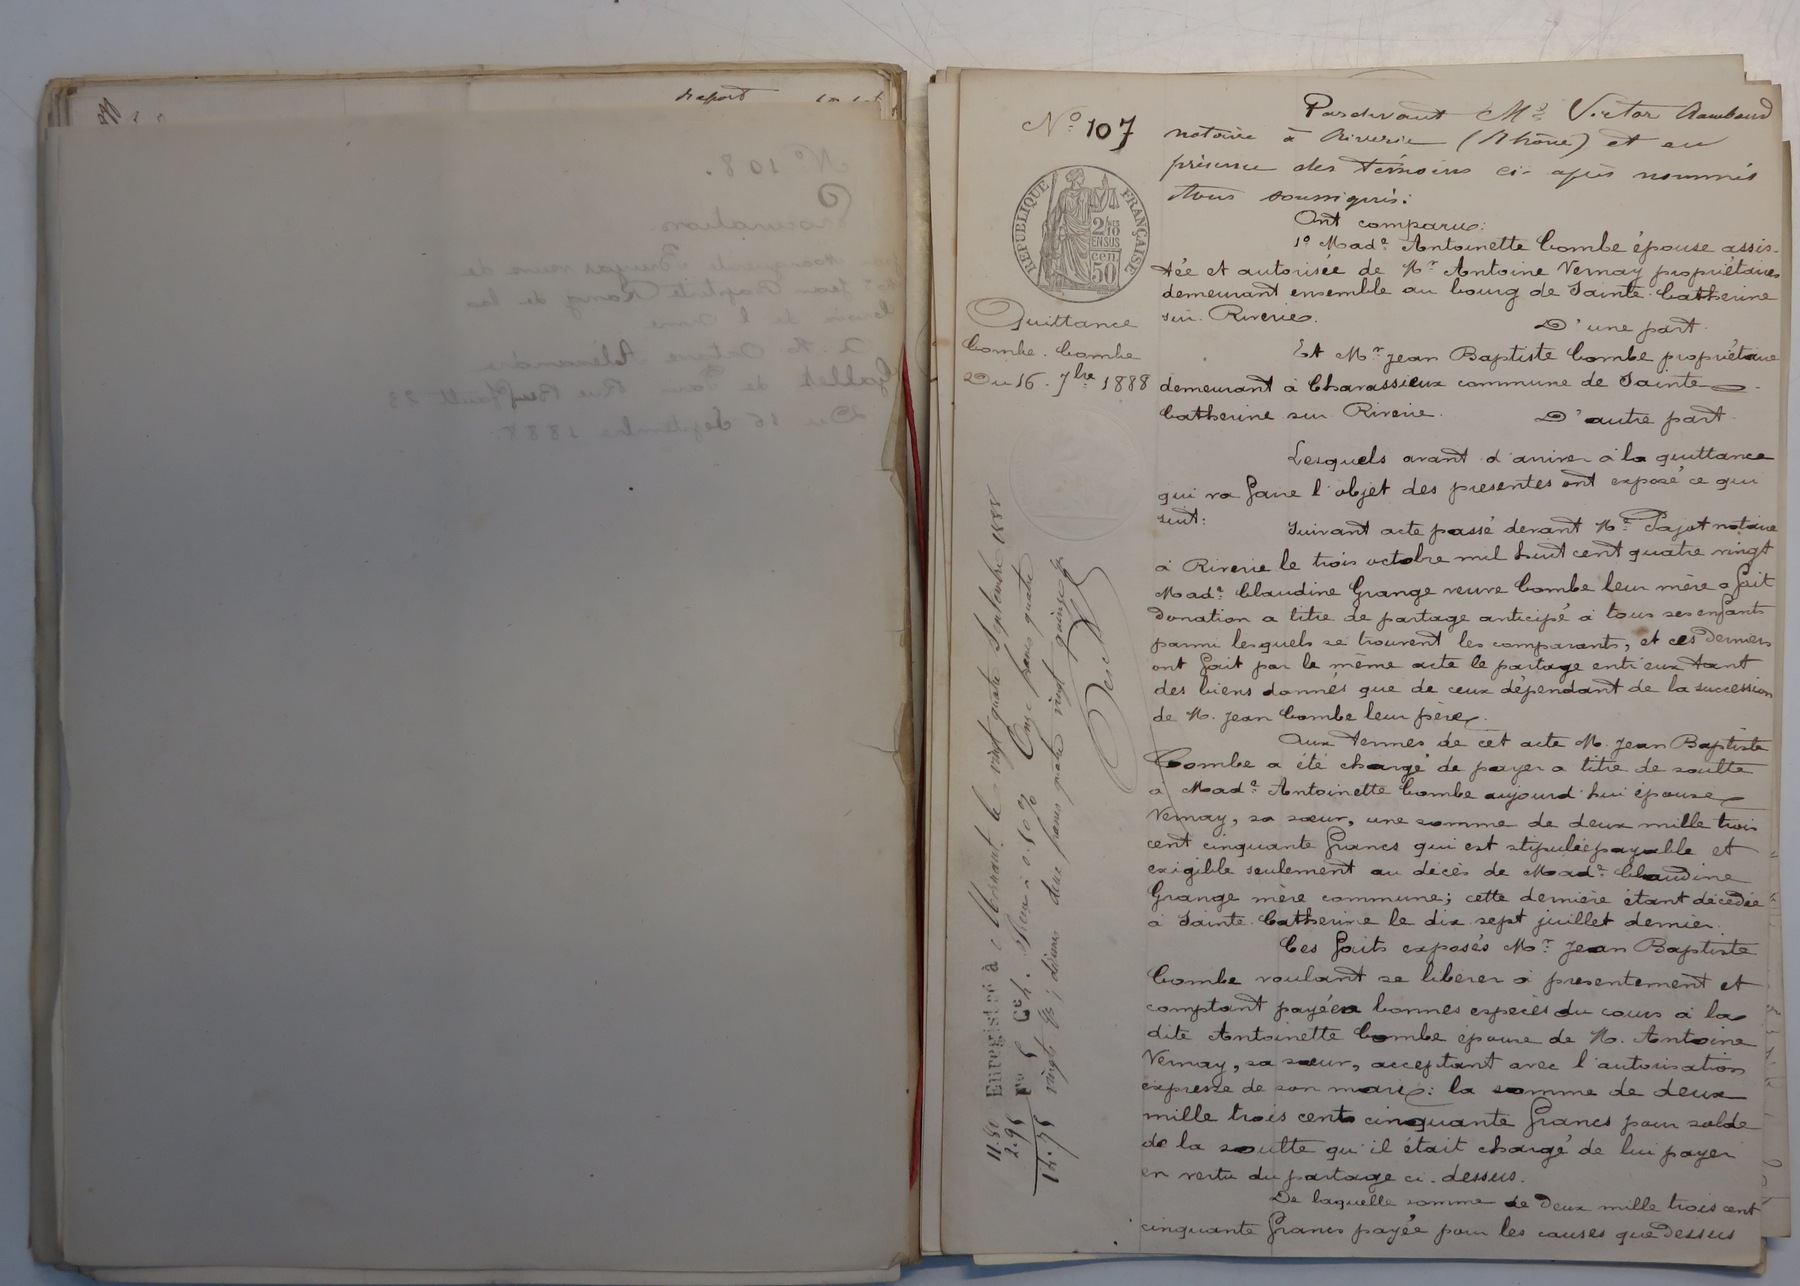 report
N° 108.
Procuration
par Marguerite veuve de
Mr Jean Baptiste
de l'
à M. Octave Alexandre
Gallet de Rue 23
Du 16 Septembre 1888.
N° 107
RÉPUBLIQUE FRANÇAISE
2/10
EN SUS
50 cen
Quittance
Combe. Combe
Du 16. 7bre 1888
Enregistré à Mornant le vingt quatre Septembre 1888
Fo 5 Ce 4. Reçu à 0.50 % Onze francs quatre
vingts ces; décimes deux francs quatre vingt quinze ces
11.80
2.95
14.75
Pardevant Me Victor Raimbaud
notaire à Riverie (Rhône) et en
présence des témoins ci-après nommés
tous soussignés.
Ont comparu:
1° Made Antoinette Combe épouse assis-
tée et autorisée de Mr Antoine Vernay propriétaires
demeurant ensemble au bourg de Sainte. Catherine
sur. Riverie.
D'une part.
Et Mr Jean Baptiste Combe propriétaire
demeurant à Charassieux commune de Sainte
Catherine sur Riverie. D'autre part.
Lesquels avant d'arriver à la quittance
qui va faire l'objet des presentes ont exposé ce qui
suit:
Suivant acte passé devant Me Pajot notaire
à Riverie le trois octobre mil huit cent quatre vingt
Made Claudine Grange veuve Combe leur mère a fait
Donation a titre de partage anticipé à tous ses enfants
parmi lesquels se trouvent les comparants, et ces Derniers
ont fait par le même acte le partage entr'eux tant
des biens donnés que de ceux dépendant de la succession
de M. Jean Combe leur père.
Aux termes de cet acte M. Jean Baptiste
Combe a été chargé de payer a titre de soulte
a Made Antoinette Combe aujourd'hui épouse
Vernay, sa sœur, une somme de deux mille trois
cent cinquante francs qui est stipulée payable et
exigible seulement au décès de Made Claudine
Grange mère commune; cette dernière étant décédée
à Sainte. Catherine le dix. sept juillet dernier.
Ces faits exposés Mr Jean Baptiste
Combe voulant se libérer a presentement et
comptant payé en bonnes especes du cours à la
dite Antoinette Combe épouse de M. Antoine
Vernay, sa sœur, acceptant avec l'autorisation
expresse de son mari: la somme de deux
mille trois cents cinquante francs pour solde
de la soulte qu'il était chargé de lui payer
en vertu du partage ci. dessus.
De laquelle somme de Deux mille trois cent
cinquante francs payée pour les causes que Dessus